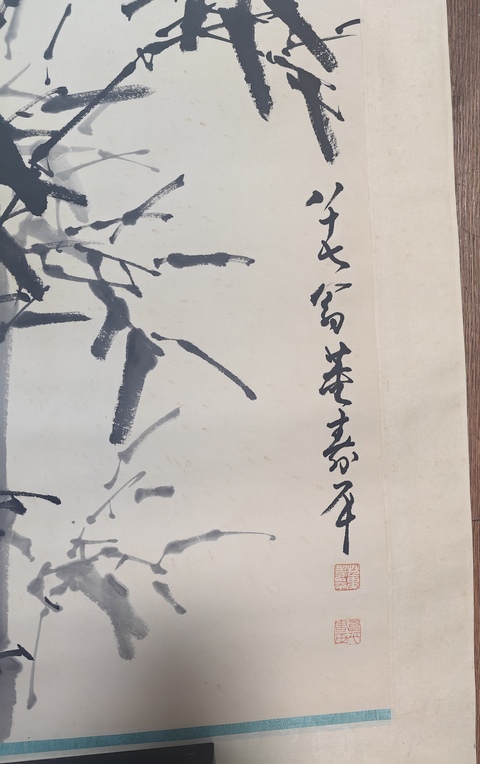 八十七翁董寿平